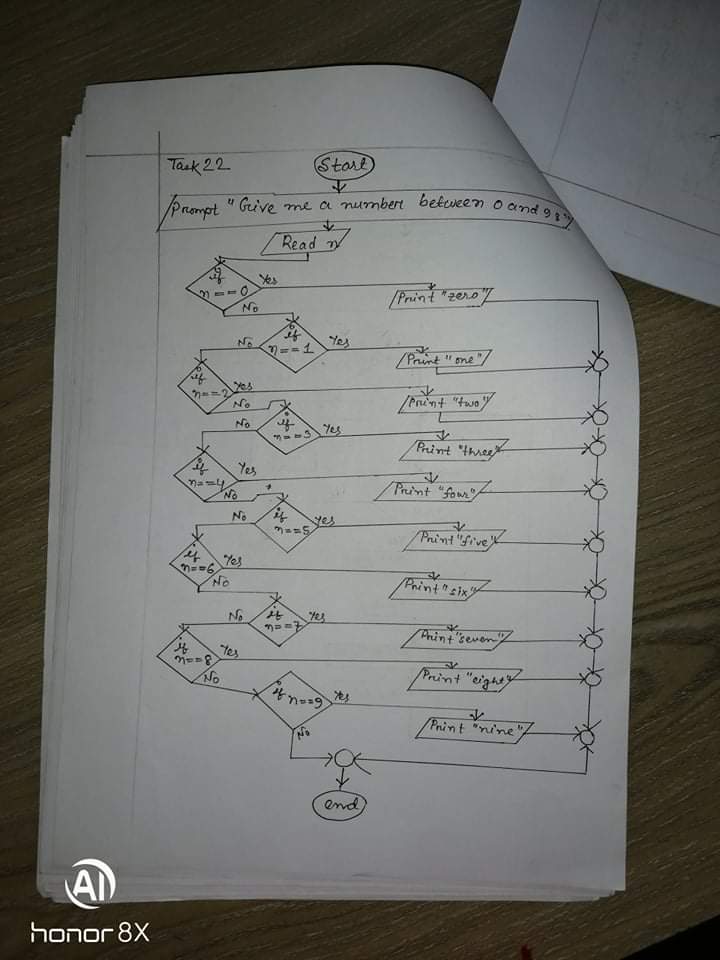 Task 22
Start
Prompt "Give me a number between 0 and 9:"
Read n
if
n == 0
Yes
No
Print "zero"
if
n == 1
No
Yes
Print "one"
if
n == 2
Yes
No
Print "two"
if
n == 3
No
Yes
Print "three"
if
n == 4
Yes
No
Print "four"
if
n == 5
No
Yes
Print "five"
if
n == 6
Yes
No
Print "six"
if
n == 7
No
Yes
Print "seven"
if
n == 8
Yes
No
Print "eight"
if n == 9
Yes
No
Print "nine"
end
AI
honor 8X